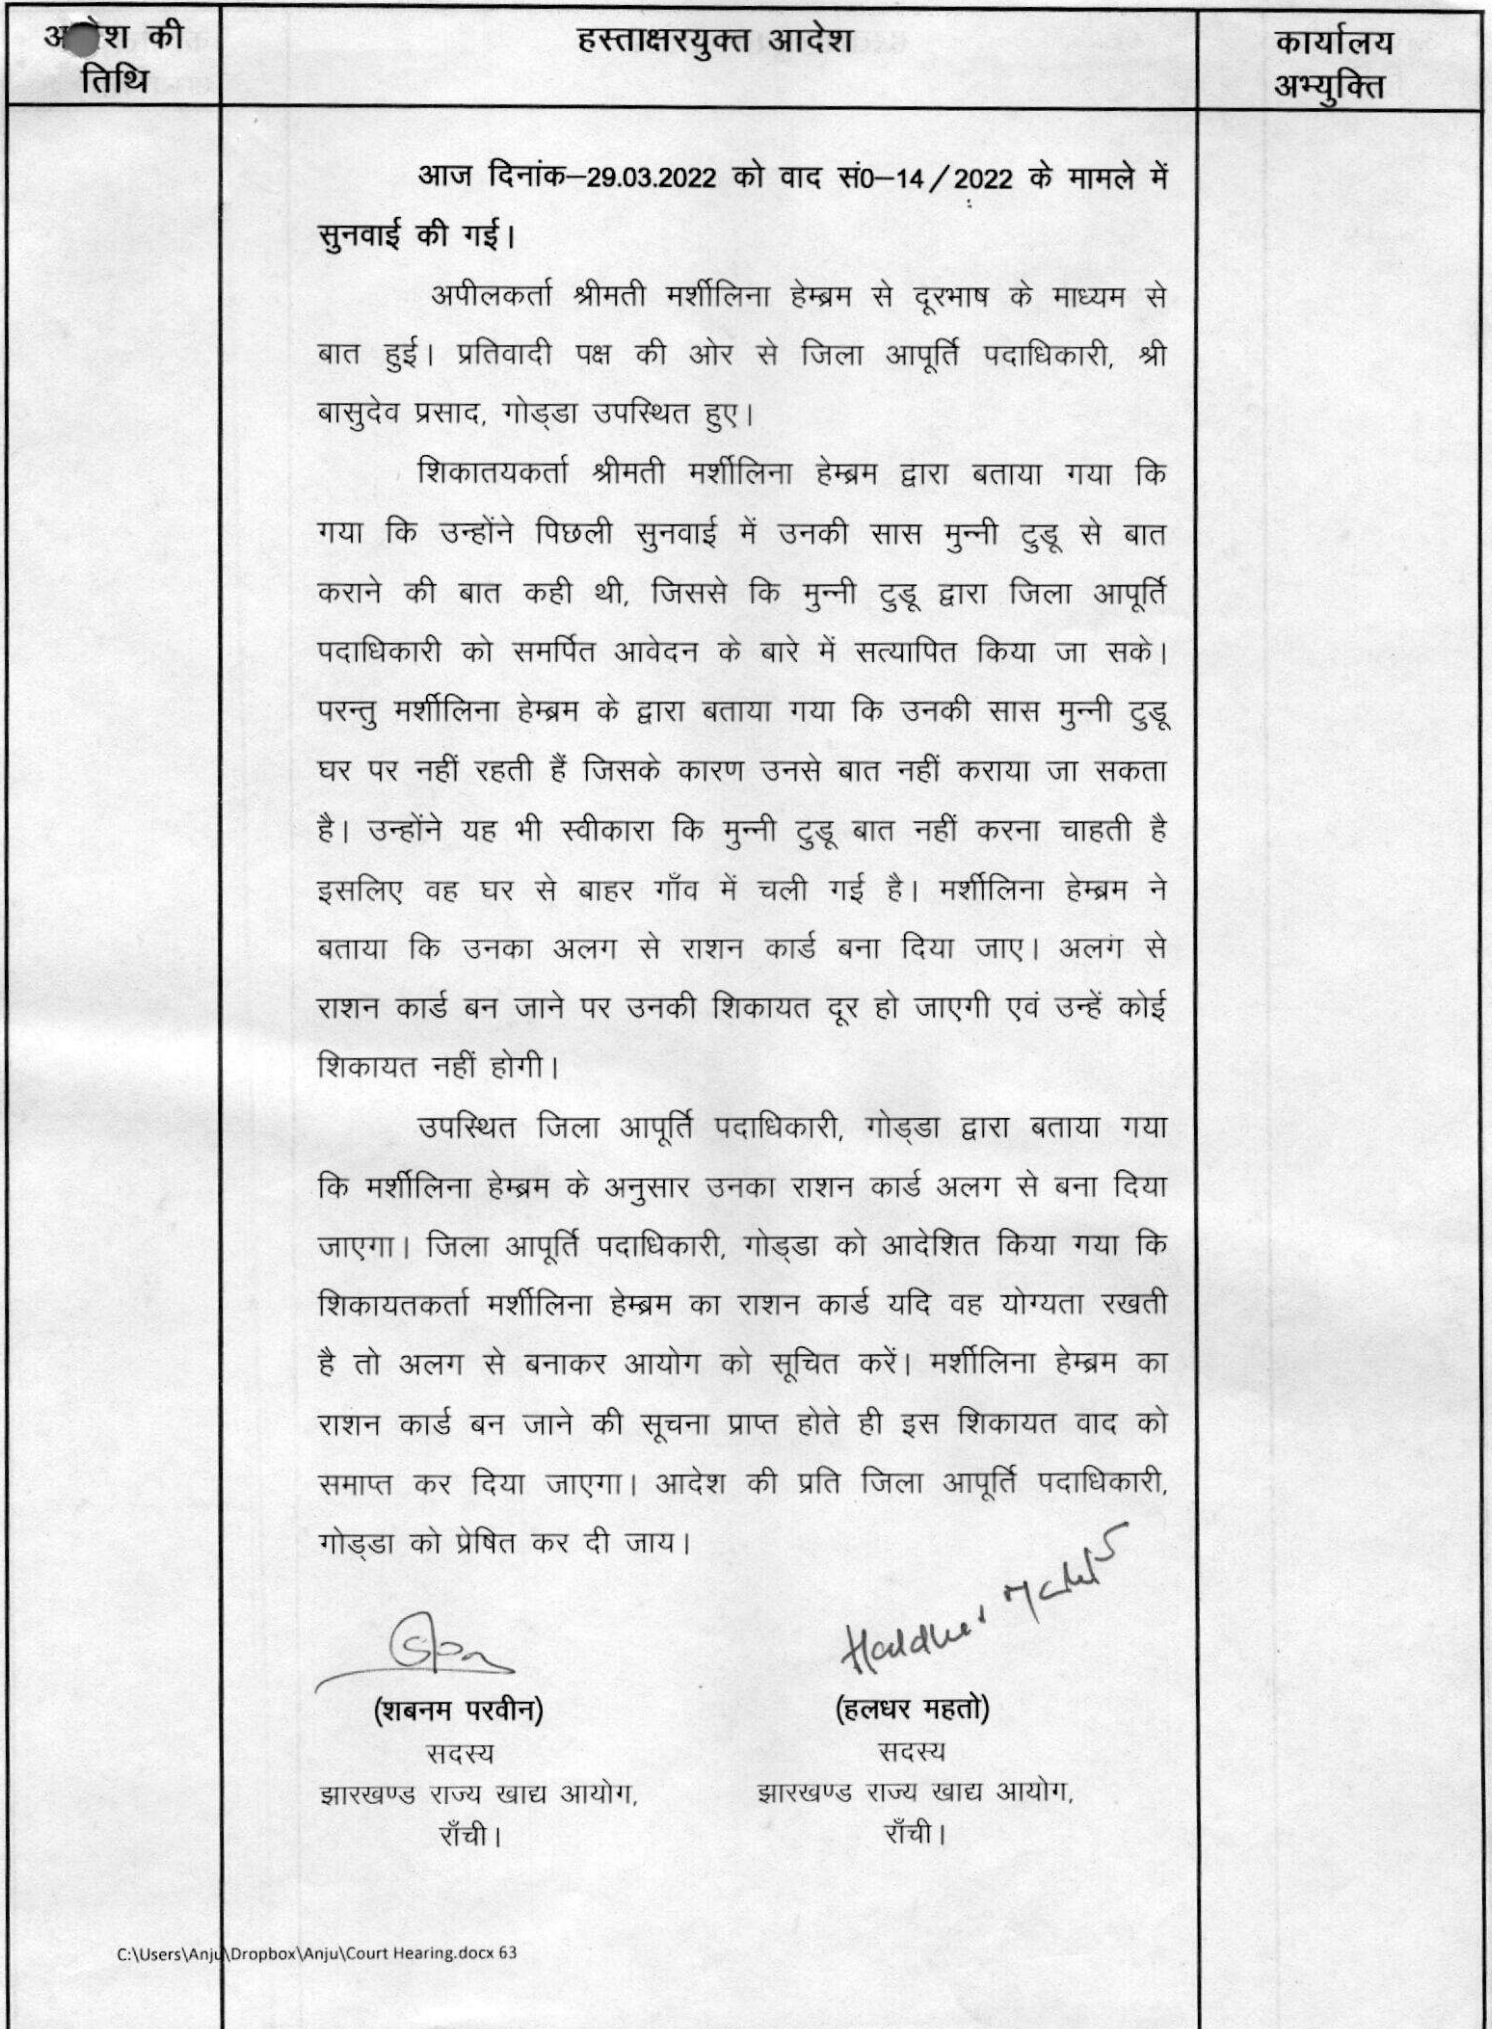 की
तिथि
हस्ताक्षरयुक्त आदेश
कार्यालय
अभ्युक्ति
आज दिनांक–29.03.2022 को वाद सं0–14/2022 के मामले में
सुनवाई की गई।
अपीलकर्ता श्रीमती मर्शीलिना हेम्ब्रम से दूरभाष के माध्यम से
बात हुई। प्रतिवादी पक्ष की ओर से जिला आपूर्ति पदाधिकारी, श्री
बासुदेव प्रसाद, गोड्डा उपस्थित हुए।
शिकातयकर्ता श्रीमती मर्शीलिना हेम्ब्रम द्वारा बताया गया कि
गया कि उन्होंने पिछली सुनवाई में उनकी सास मुन्नी टुडू से बात
कराने की बात कही थी, जिससे कि मुन्नी टुडू द्वारा जिला आपूर्ति
पदाधिकारी को समर्पित आवेदन के बारे में सत्यापित किया जा सके।
परन्तु मर्शीलिना हेम्ब्रम के द्वारा बताया गया कि उनकी सास मुन्नी टुडू
घर पर नहीं रहती हैं जिसके कारण उनसे बात नहीं कराया जा सकता
है। उन्होंने यह भी स्वीकारा कि मुन्नी टुडू बात नहीं करना चाहती है
इसलिए वह घर से बाहर गाँव में चली गई है। मर्शीलिना हेम्ब्रम ने
बताया कि उनका अलग से राशन कार्ड बना दिया जाए। अलग से
राशन कार्ड बन जाने पर उनकी शिकायत दूर हो जाएगी एवं उन्हें कोई
शिकायत नहीं होगी।
उपस्थित जिला आपूर्ति पदाधिकारी, गोड्डा द्वारा बताया गया
कि मर्शीलिना हेम्ब्रम के अनुसार उनका राशन कार्ड अलग से बना दिया
जाएगा। जिला आपूर्ति पदाधिकारी, गोड्डा को आदेशित किया गया कि
शिकायतकर्ता मर्शीलिना हेम्ब्रम का राशन कार्ड यदि वह योग्यता रखती
है तो अलग से बनाकर आयोग को सूचित करें। मर्शीलिना हेम्ब्रम का
राशन कार्ड बन जाने की सूचना प्राप्त होते ही इस शिकायत वाद को
समाप्त कर दिया जाएगा। आदेश की प्रति जिला आपूर्ति पदाधिकारी,
गोड्डा को प्रेषित कर दी जाय।
(शबनम परवीन)
सदस्य
झारखण्ड राज्य खाद्य आयोग,
राँची।
(हलधर महतो)
सदस्य
झारखण्ड राज्य खाद्य आयोग,
राँची।
C:\Users\Anju\Dropbox\Anju\Court Hearing.docx 63